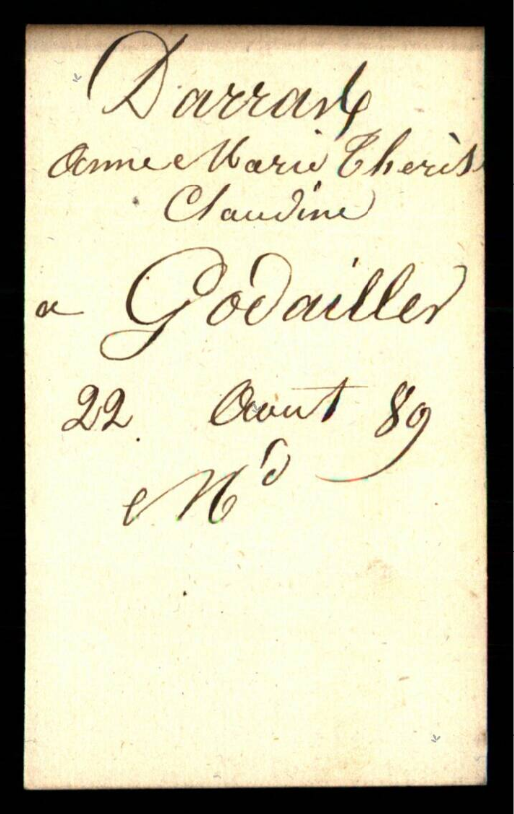 Darras
Anne Marie Therès
Claudine
a Godailler
22 Aout 89
Md